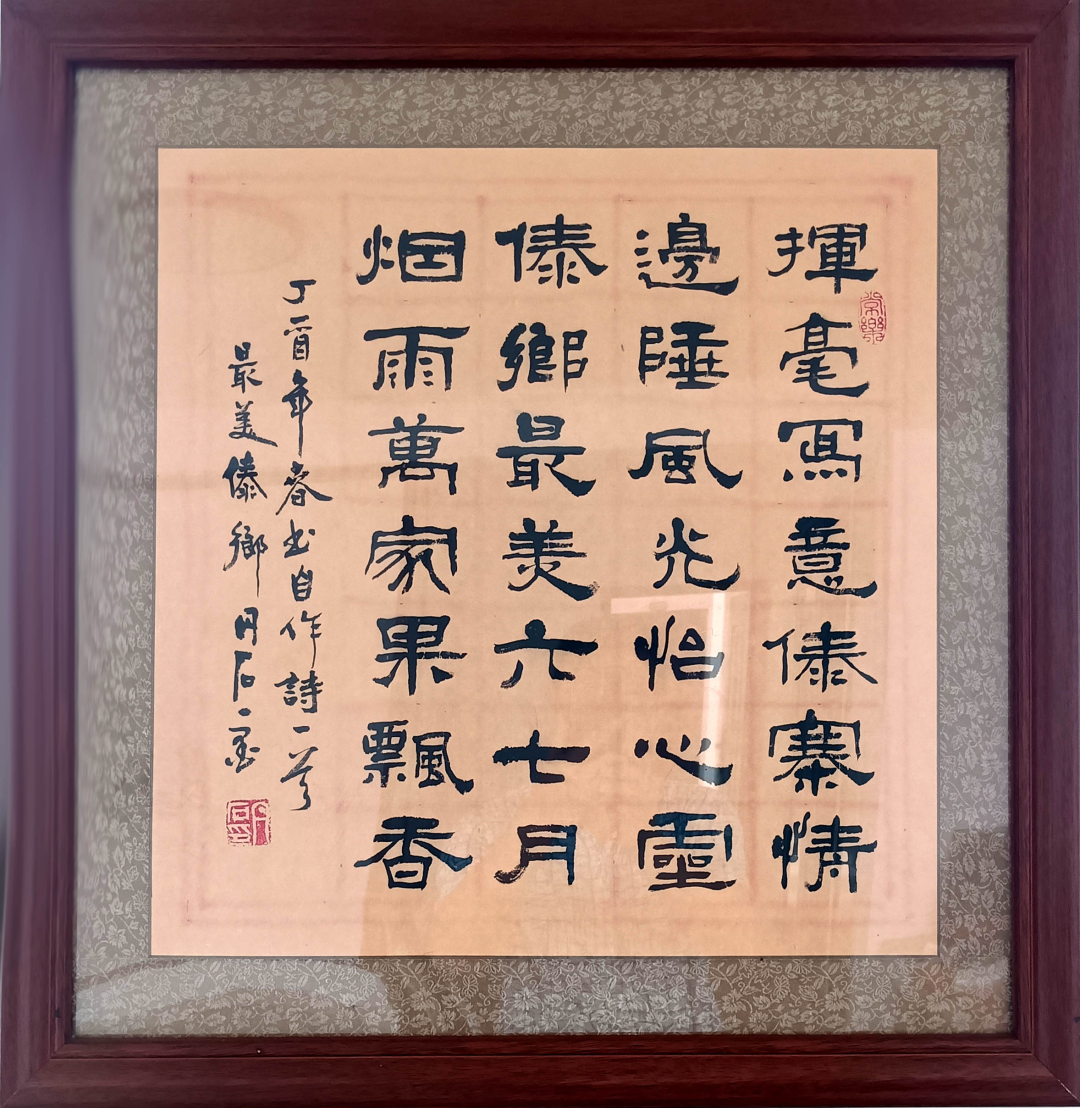 揮毫寫意傣寨情
邊陲風光怡心靈
傣鄉最美六七月
烟雨萬家果飄香
丁酉年春書自作詩一首
最美傣鄉 丹石
常樂